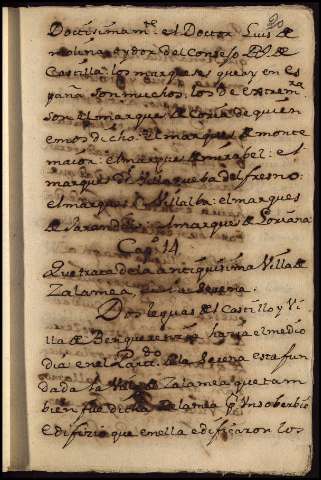 20
Doctísimamte. el Doctor Luis de
molina oydor del Consejo Rl. de
Castilla. los marqueses que ay en es
paña son muchos: los de extrema
son el marques de Coria de quien
emos dicho. el marques de monte
maior: el marques de mirabel: el
marques de Villanueba del fresno:
el marques de Villalba: el marques
de Sarandos: el marques de Loriana:
Capo. 14
Que trata de la antiquísima Villa de
Zalamea, en la Serena.
Dos leguas de el Castillo y Vi
lla de Benquerenzia hazia el medio
dia en el Part.do de la Serena esta fun
dada la Villa de Zalamea que tam
bien fue dicha Ylamea por Un soberbio
edifizio que en ella edificaron los